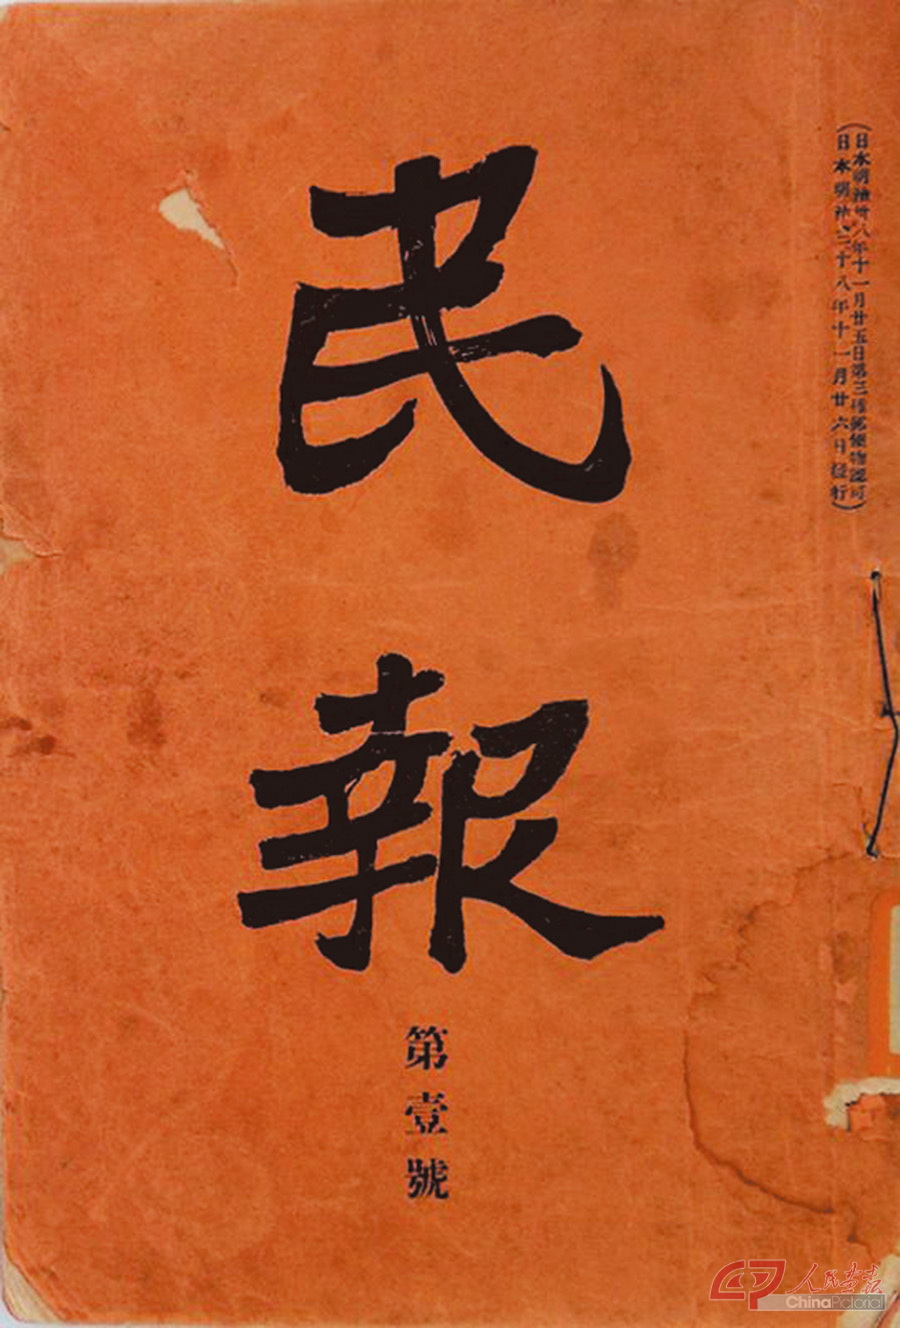 (日本明治卅八年十一月廿五日第三種郵便物認可)
(日本明治三十八年十一月廿六日發行)
民報
第壹號
人民画报
ChinaPictorial